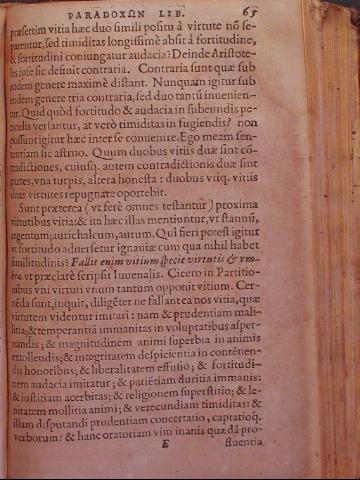 PARADOXΩN LIB. 65
præsertim vitia hæc duo simili positu à virtute nõ se-
parentur, sed timiditas longissimè absit à fortitudine,
& fortitudini coniungatur audacia? Deinde Aristote-
les ipse sic definit contraria. Contraria sunt quæ sub
eodem genere maximè distant. Nunquam igitur sub
eodem genere tria contraria, sed duo tantũ inuenien-
tur. Quid quòd fortitudo & audacia in subeundis pe-
riculis versantur, at verò timiditas in fugiendis? non
possunt igitur hæc inter se conuenire. Ego meam sen-
tentiam sic astruo. Quum duobus vitiis duæ sint cõ-
tradictiones, cuiusq. autem contradictionis duæ sint
partes, vna turpis, altera honesta: duobus vtiq. vitiis
duas virtutes repugnare oportebit.
Sunt præterea (vt ferè omnes testantur) proxima
virtutibus vitia: & ita hæc illas mentiuntur, vt stannũ,
argentum; aurichalcum, aurum. Qui fieri potest igitur
vt fortitudo aduersetur ignauiæ cum qua nihil habet
similitudinis? Fallit enim vitium specie virtutis & vm-
bra, vt præclarè scripsit Iuuenalis. Cicero in Partitio-
nibus vni virtuti vnum tantum opponit vitium. Cer-
nẽda sunt, inquit, diligẽter ne fallant ea nos vitia, quæ
virtutem videntur imitari: nam & prudentiam mali-
litia; & temperantiã immanitas in voluptatibus asper-
nandis; & magnitudinem animi superbia in animis
extollendis; & integritatem despicientia in contẽnen-
dis honoribus; & liberalitatem effusio; & fortitudi-
nem audacia imitatur; & patiẽtiam duritia immanis:
& iustitiam acerbitas; & religionem superstitio; & le-
nitatem mollitia animi; & verecundiam timiditas: &
illam disputandi prudentiam concertatio, captatioq́.
verborum: & hanc oratoriam vim inanis quædã pro-
E fluentia